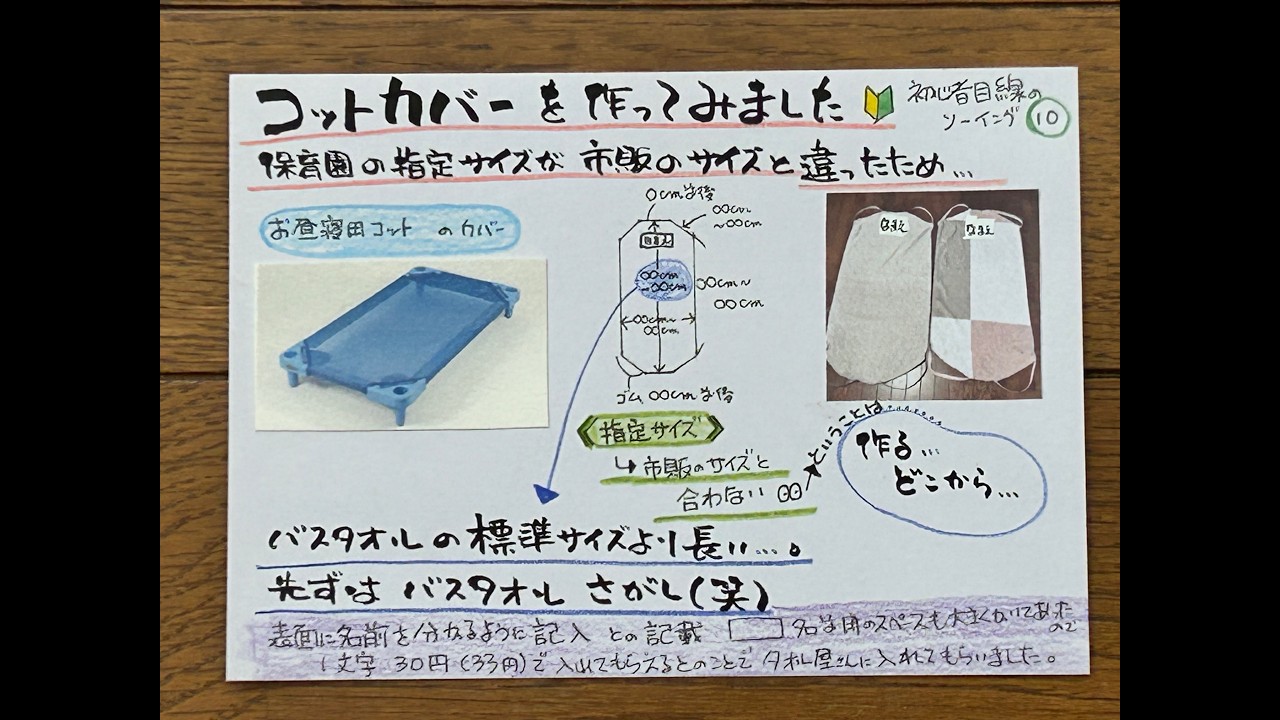 コットカバーを作ってみました
初心者目線の
ソーイング ⑩
保育園の指定サイズが市販のサイズと違ったため…
お昼寝用コットのカバー
〇cm前後
〇〇cm
~〇〇cm
なまえ
〇〇cm
~〇〇cm
〇〇cm~
〇〇cm
〇〇cm~
〇〇cm
ゴム〇〇cm前後
なまえ
なまえ
指定サイズ
↳市販のサイズと
合わない
ということは……
作る…
どこから…
バスタオルの標準サイズより長い…。
先ずはバスタオルさがし(笑)
表面に名前を分かるように記入 との記載
名字用のスペースも大きくかいてあったので
1文字 30円(33円)で入れてもらえるとのことで タオル屋さんに入れてもらいました。